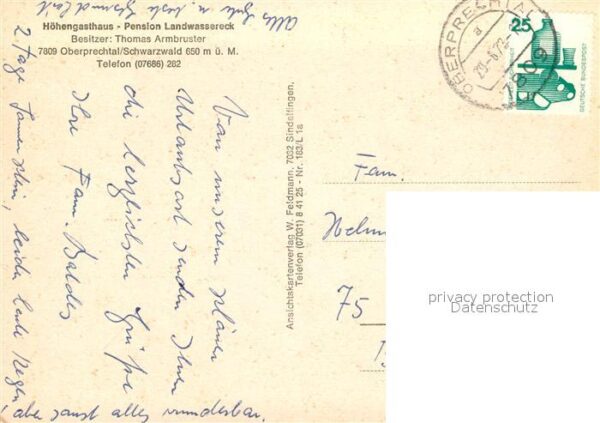 Höhengasthaus - Pension Landwassereck
Besitzer: Thomas Armbruster
7809 Oberprechtal/Schwarzwald 650 m ü. M.
Telefon (07686) 282
Von unserem
Urlaubsort senden Ihnen
die herzlichsten Grüße
Ihre Fam. Baldes
2 Tage Sonnenschein, leider heute Regen,
aber sonst alles wunderbar.
Alles Gute u. beste Gesundheit
Ansichtskartenverlag W. Feldmann, 7032 Sindelfingen,
Telefon (07031) 8 41 25 - Nr. 183/L 1a
OBERPRECHTAL
a
7809
25
DEUTSCHE BUNDESPOST
Fam.
75
privacy protection
Datenschutz